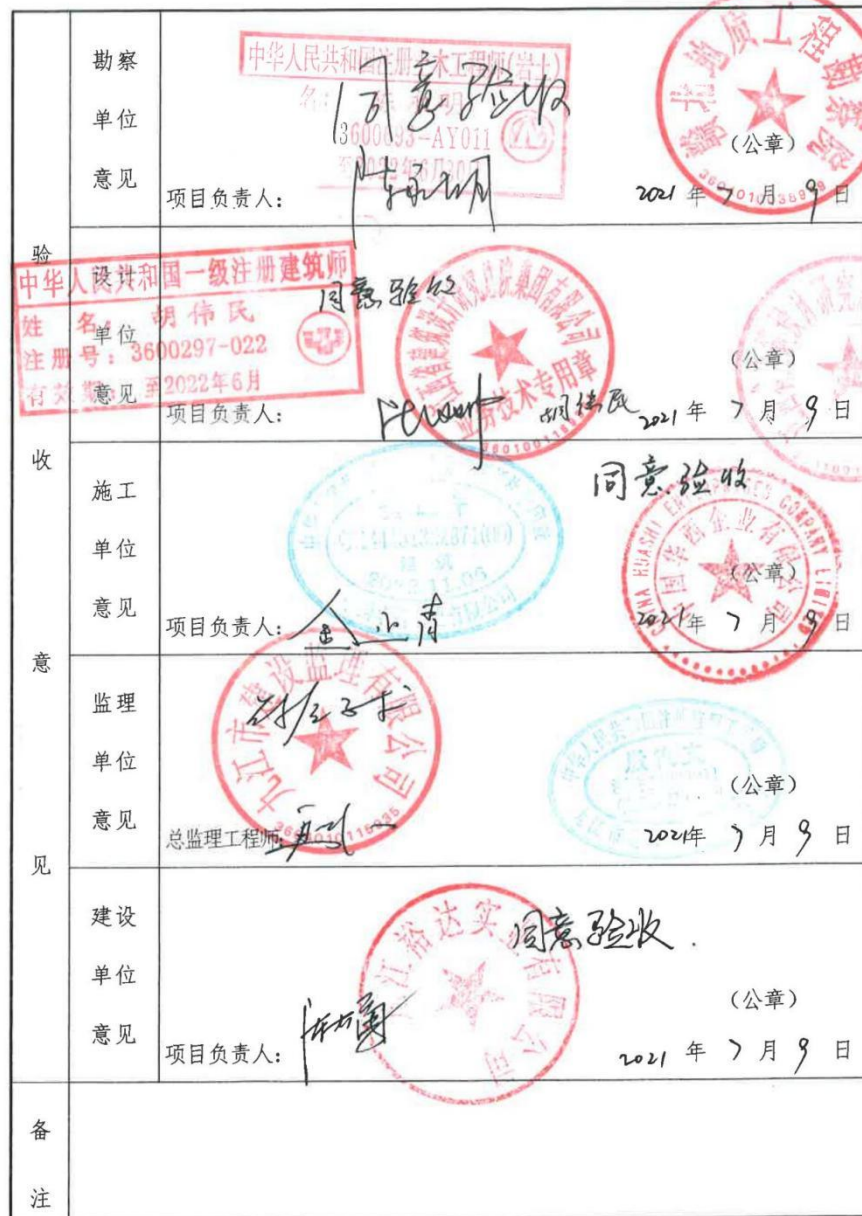 验收意见
勘察单位意见
中华人民共和国注册土木工程师(岩土)
同意验收
3600093-AY011
至2022年6月30
赣北地质工程勘察院
(公章)
项目负责人:
2021 年 7 月 9 日
设计单位意见
中华人民共和国一级注册建筑师
姓 名: 胡伟民
注册号: 3600297-022
有效期: 至2022年6月
同意验收
业务技术专用章
(公章)
项目负责人:
胡伟民
2021 年 7 月 9 日
施工单位意见
同意验收
CHINA HUASHI ENTERPRISES COMPANY LIMITED
中国华西企业有限公司
2022.11.05
(公章)
项目负责人:
2021 年 7 月 9 日
监理单位意见
九江市建设监理有限公司
(公章)
总监理工程师:
2021年 7 月 9 日
建设单位意见
同意验收.
江裕达实业有限公司
(公章)
项目负责人:
2021 年 7 月 9 日
备注